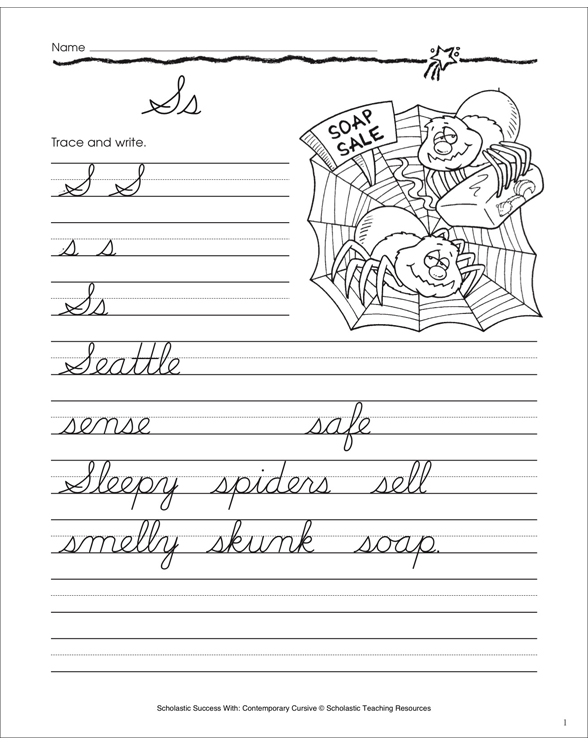 Name
Ss
Trace and write.
SOAP
SALE
S S
s s
Ss
Seattle
sense safe
Sleepy spiders sell
smelly skunk soap.
Scholastic Success With: Contemporary Cursive © Scholastic Teaching Resources
1